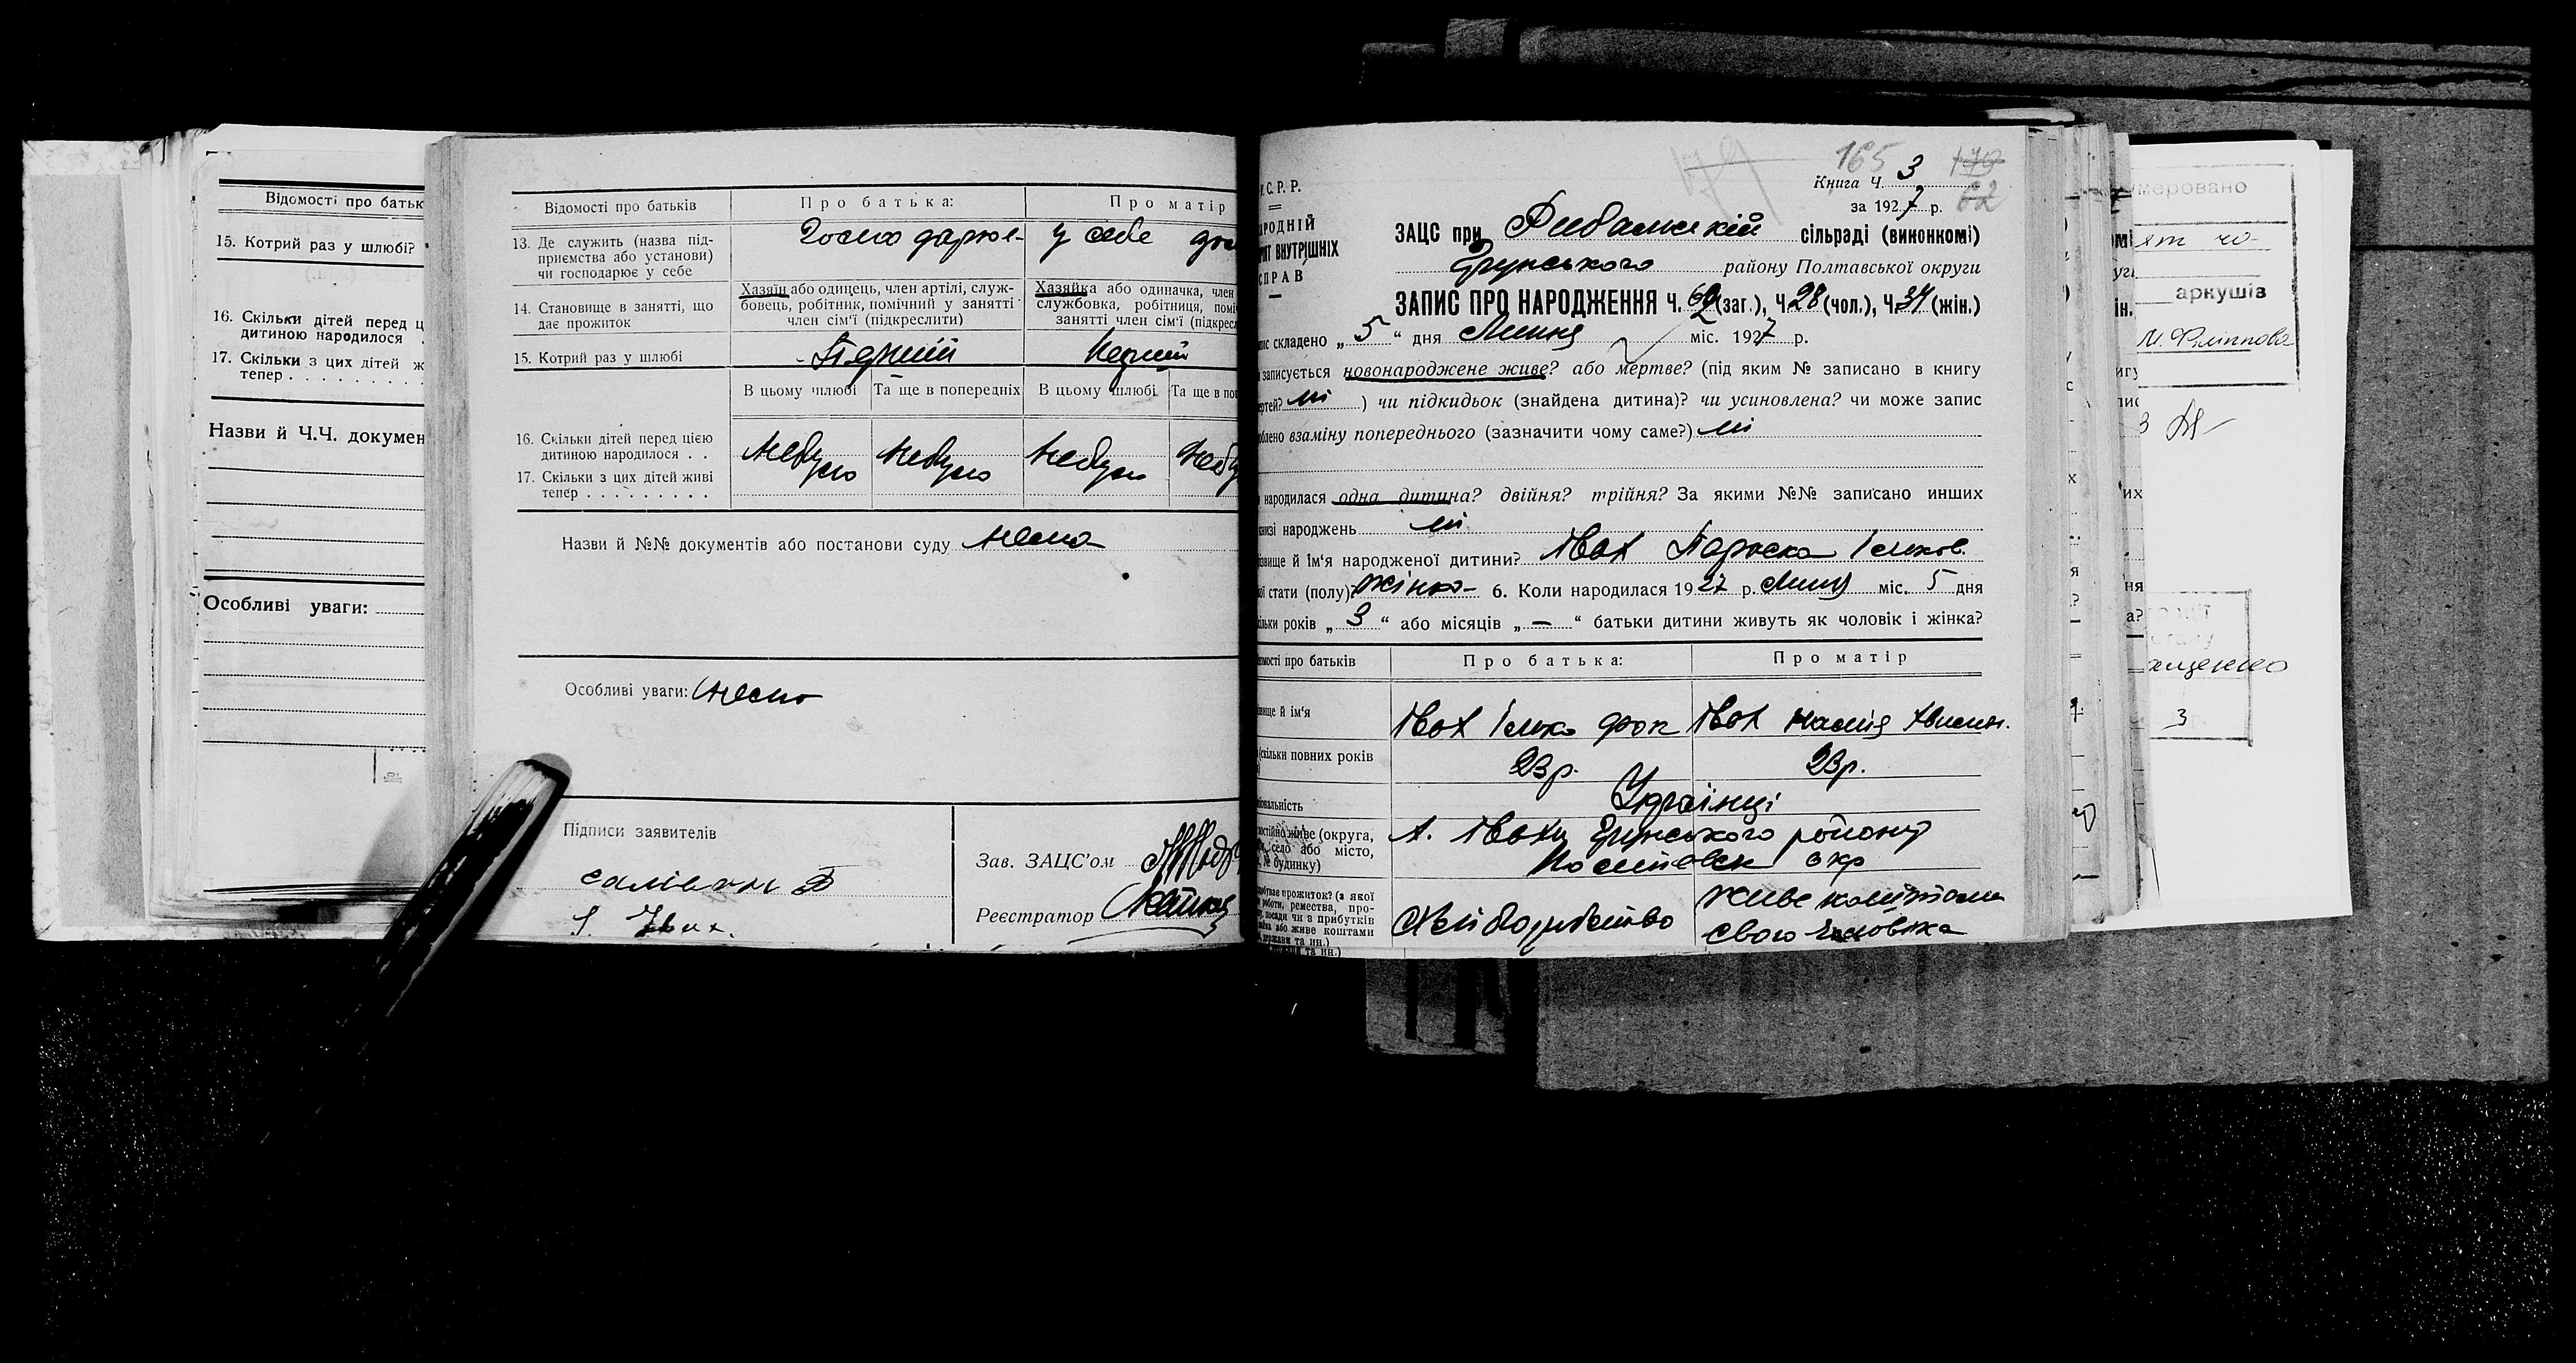 Відомості про батьк
15. Котрий раз у шлюбі?
16. Скільки дітей перед ц
дитиною народилося
17. Скільки з цих дітей ж
тепер
Назви й Ч.Ч. докумен
Особливі уваги:
Відомості про батьків
Про батька:
Про матір
13. Де служить (назва під-
приємства або установи)
чи господарює у себе
у себе
14. Становище в занятті, що
дає прожиток
Хазяїн або одинець, член артілі, служ-
бовець, робітник, помічний у занятті
член сім'ї (підкреслити)
Хазяйка або одиначка, член
службовка, робітниця, помі
занятті член сім'ї (підкрес
15. Котрий раз у шлюбі
Перший
Перший
В цьому шлюбі
Та ще в попередніх
В цьому шлюбі
Та ще в по
16. Скільки дітей перед цією
дитиною народилося
17. Скільки з цих дітей живі
тепер
Небуло
Небуло
Небуло
Небу
Назви й №№ документів або постанови суду нема
Особливі уваги: нема
Підписи заявителів
Зав. ЗАЦС'ом
Реєстратор
165
179
Книга Ч. 3
за 1927 р.
62
С. Р. Р.
РОДНІЙ
ВНУТРІШНІХ
СПРАВ
ЗАЦС при Рибальскій сільраді (виконкомі)
Грунського району Полтавської округи
ЗАПИС ПРО НАРОДЖЕННЯ Ч. 62 (заг.), Ч. 28 (чол.), Ч. 34 (жін.)
складено „5“ дня Липня міс. 1927 р.
записується новонароджене живе? або мертве? (під яким № записано в книгу
ні ) чи підкидьок (знайдена дитина)? чи усиновлена? чи може запис
взаміну попереднього (зазначити чому саме?) ні
народилася одна дитина? двійня? трійня? За якими №№ записано инших
народжень ні
й ім'я народженої дитини? Івах Параска Ільков.
стати (полу) Жіноч- 6. Коли народилася 1927 р. Липня міс. 5 дня
років „3“ або місяців „—“ батьки дитини живуть як чоловік і жінка?
про батьків
Про батька:
Про матір
й ім'я
Івах Ілько
Івах Настя
скільки повних років
23 р.
23 р.
Українці
живе (округа,
село або місто,
№ будинку)
х. Івахи Грунського району
Полтавськ окр
прожиток? (з якої
роботи, ремества, про-
посади чи в прибутків
або живе коштами
держави та ин.)
Хліборобство
живе коштами
свого чоловіка
аркушів
3
3